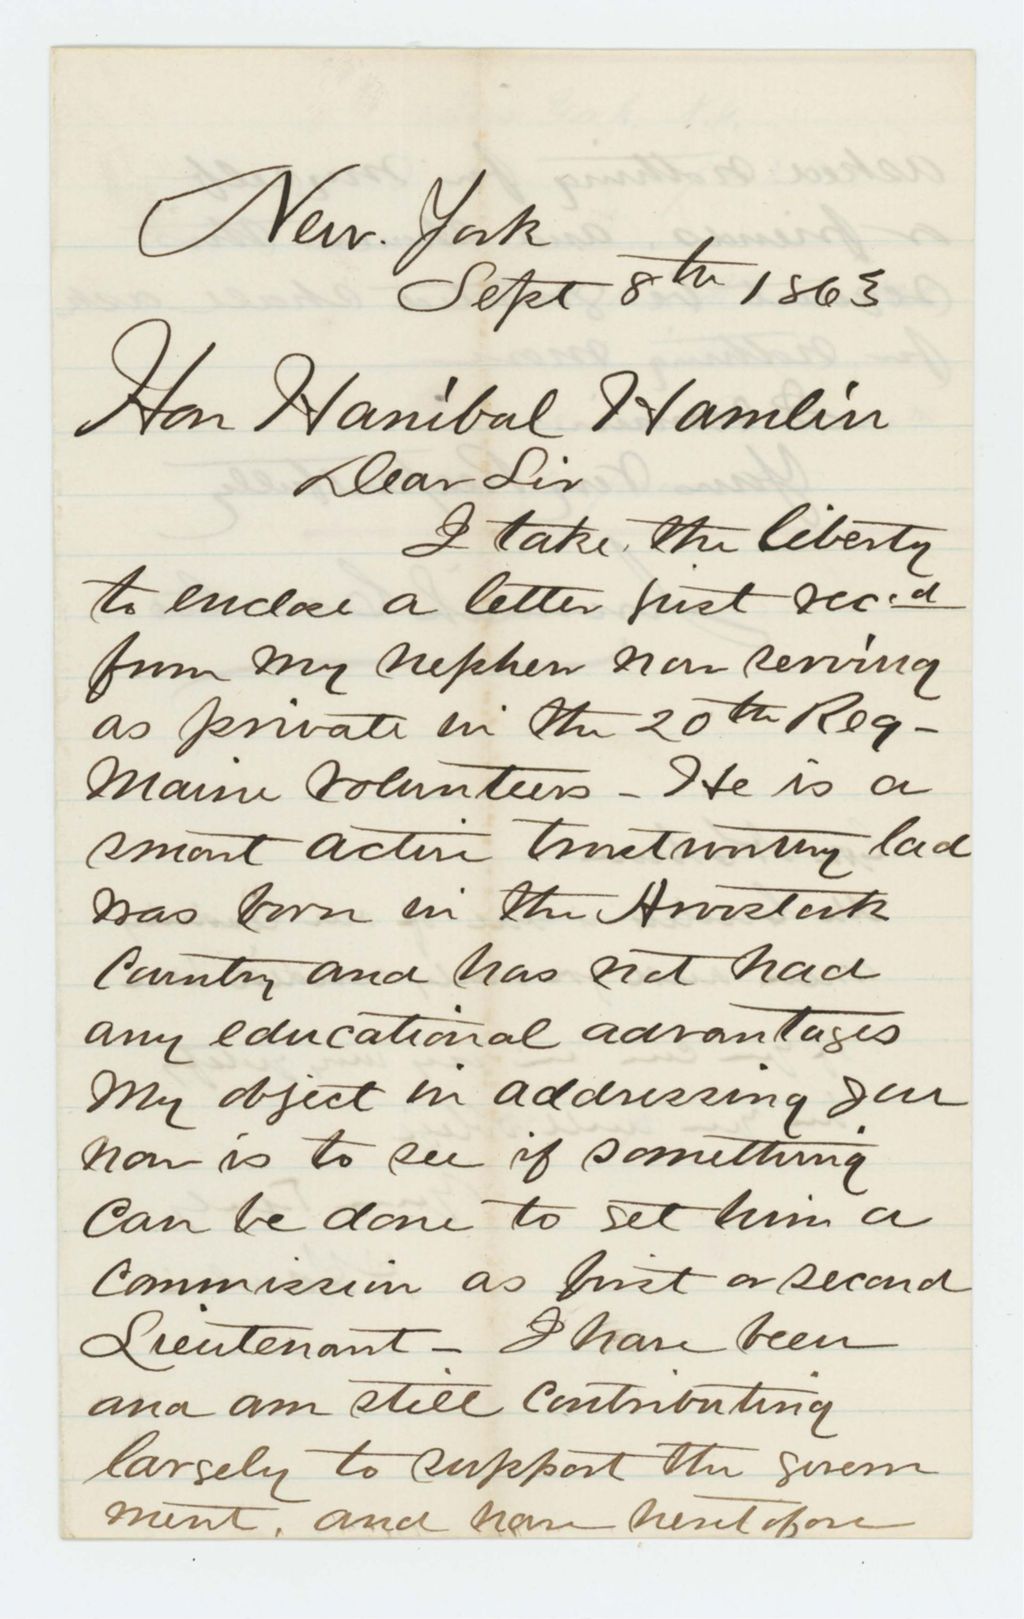 New. York
Sept 8th 1863
Hon Hanibal Hamlin
Dear Sir
I take the liberty
to enclose a letter just rec.d
from my nephew now serving
as private in the 20th Reg-
Maine Volunteers - He is a
smart active trustworthy lad
was born in the Aroostook
Country and has not had
any educational advantages
My object in addressing you
now is to see if something
can be done to get him a
Commission as first or second
Lieutenant - I have been
and am still contributing
largely to support the govern
ment, and have heretofore